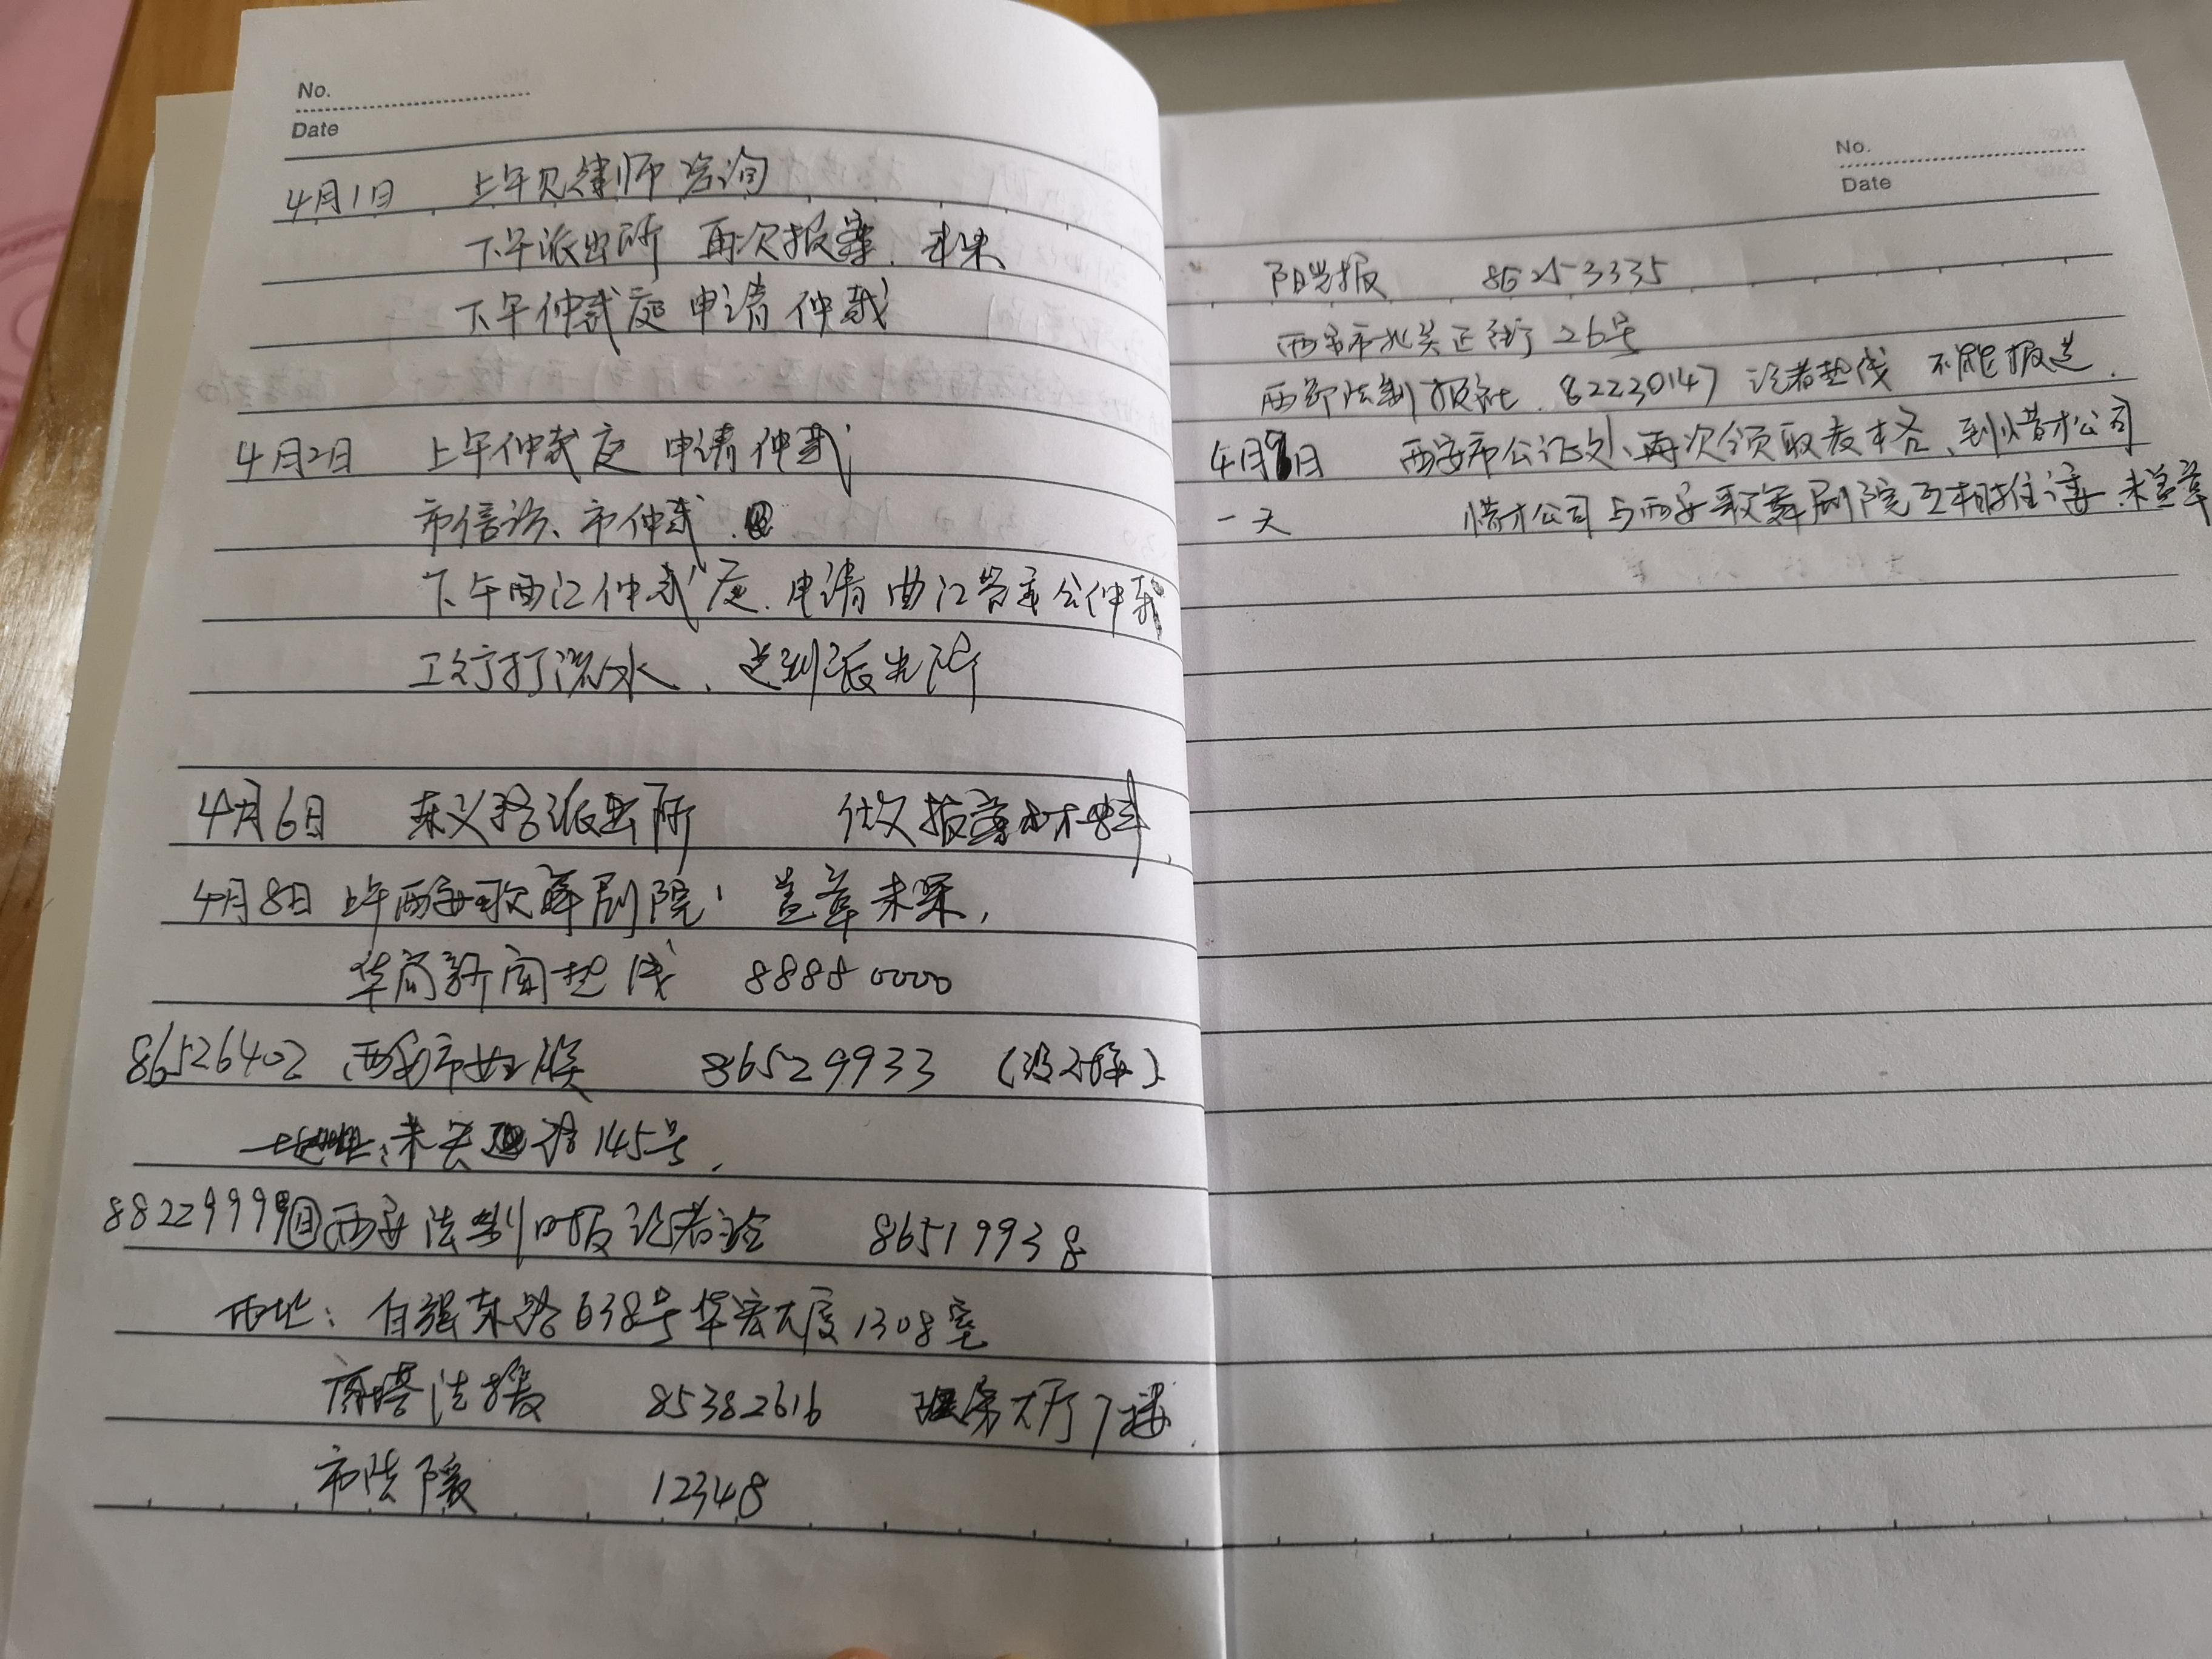 No.
Date
4月1日 上午见律师咨询
下午派出所 再次报案、未果
下午仲裁庭 申请仲裁
4月2日 上午仲裁庭 申请仲裁
市信访、市仲裁、
下午曲江仲裁庭、申请曲江管委会仲裁
工行打流水、送到派出所
4月6日 东义路派出所 做报案材料、
4月8日 上午西安歌舞剧院 盖章未果,
华商新闻热线 88880000
86526402 西安市妇联 86529933 (没人接)
地址:未央路145号,
88229999 西安法制日报记者站 86519938
地址:自强东路638号华宏大厦1308室
雁塔法援 85382616 政务大厅7楼、
市法援 12348
No.
Date
阳光报 8625-3335
西安市北关正街26号
西部法制报社、82230147 记者热线 不能报道、
4月9日 西安市公证处、再次领取表格、到惜才公司
一天 惜才公司与西安歌舞剧院互相推诿、未盖章